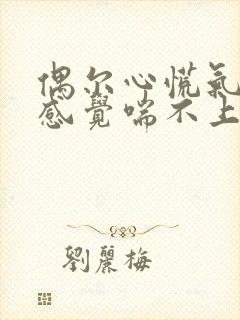 偶尔心慌氣
感覺喘不上
劉麗梅